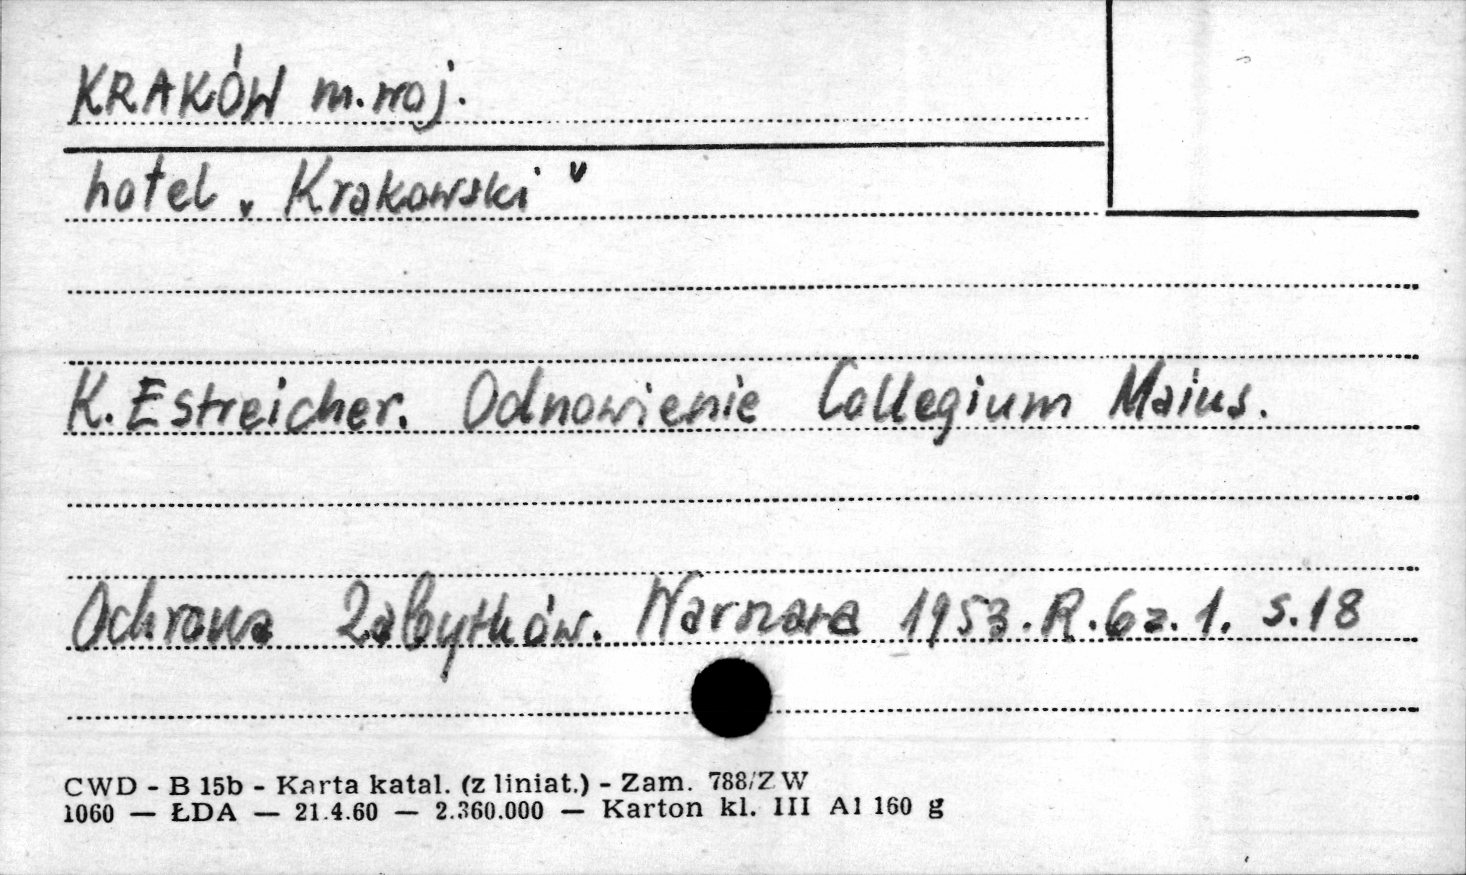 KRAKÓW m. woj.
hotel „Krakowski”
K. Estreicher. Odnowienie Collegium Maius.
Ochrona Zabytków. Warszawa 1953. R. 6 z. 1. s. 18
CWD - B 15b - Karta katal. (z liniat.) - Zam. 788/ZW
1060 — ŁDA — 21.4.60 — 2.360.000 — Karton kl. III A1 160 g